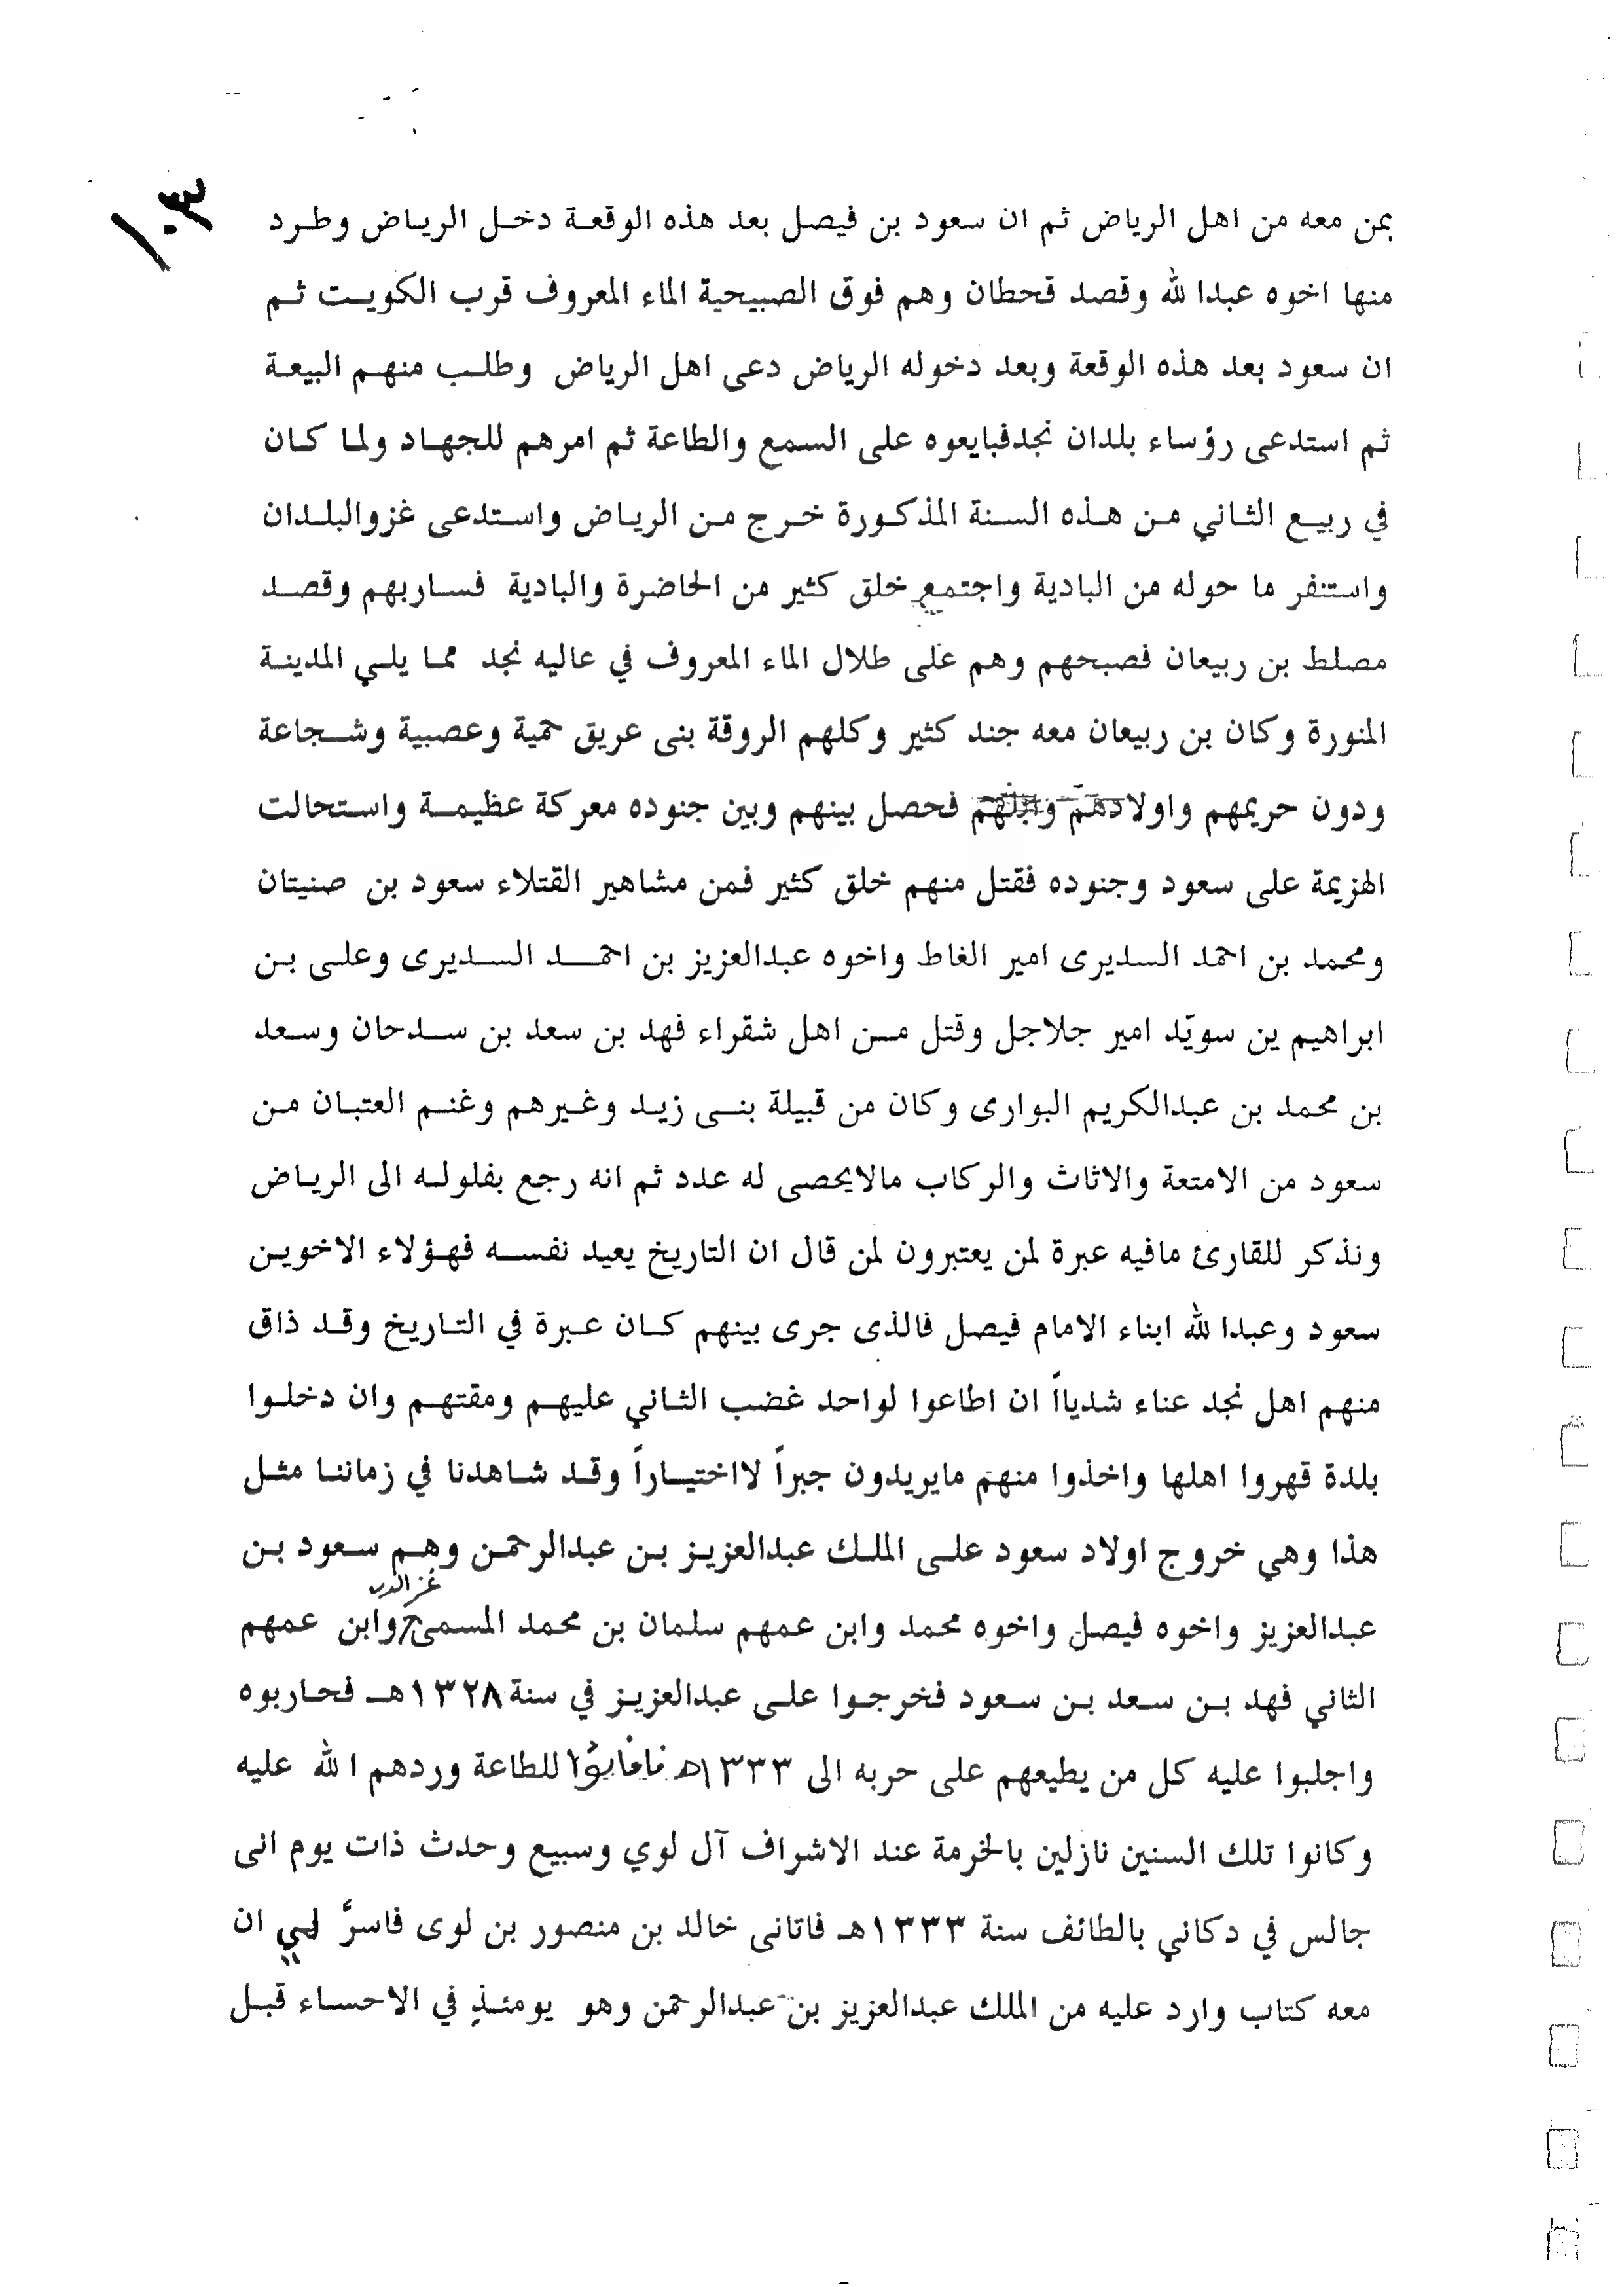 ١٠٣
بمن معه من اهل الرياض ثم ان سعود بن فيصل بعد هذه الوقعة دخل الرياض وطرد
منها اخوه عبدا لله وقصد قحطان وهم فوق الصبيحية الماء المعروف قرب الكويت ثم
ان سعود بعد هذه الوقعة وبعد دخوله الرياض دعى اهل الرياض وطلب منهم البيعة
ثم استدعى رؤساء بلدان نجدفبايعوه على السمع والطاعة ثم امرهم للجهاد ولما كان
في ربيع الثاني من هذه السنة المذكورة خرج من الرياض واستدعى غزوالبلدان
واستنفر ما حوله من البادية واجتمع خلق كثير من الحاضرة والبادية فساربهم وقصد
مصلط بن ربيعان فصبحهم وهم على طلال الماء المعروف في عاليه نجد مما يلي المدينة
المنورة وكان بن ربيعان معه جند كثير وكلهم الروقة بنى عريق حمية وعصبية وشجاعة
ودون حريمهم واولادهم فحصل بينهم وبين جنوده معركة عظيمة واستحالت
الهزيمة على سعود وجنوده فقتل منهم خلق كثير فمن مشاهير القتلاء سعود بن صنيتان
ومحمد بن احمد السديرى امير الغاط واخوه عبدالعزيز بن احمد السديرى وعلى بن
ابراهيم ين سويّد امير جلاجل وقتل من اهل شقراء فهد بن سعد بن سدحان وسعد
بن محمد بن عبدالكريم البوارى وكان من قبيلة بنى زيد وغيرهم وغنم العتبان من
سعود من الامتعة والاثاث والركاب مالايحصى له عدد ثم انه رجع بفلوله الى الرياض
ونذكر للقارئ مافيه عبرة لمن يعتبرون لمن قال ان التاريخ يعيد نفسه فهؤلاء الاخوين
سعود وعبدا لله ابناء الامام فيصل فالذى جرى بينهم كان عبرة في التاريخ وقد ذاق
منهم اهل نجد عناء شدياً ان اطاعوا لواحد غضب الثاني عليهم ومقتهم وان دخلوا
بلدة قهروا اهلها واخذوا منهم مايريدون جبراً لااختياراً وقد شاهدنا في زماننا مثل
هذا وهي خروج اولاد سعود على الملك عبدالعزيز بن عبدالرحمن وهم سعود بن
عبدالعزيز واخوه فيصل واخوه محمد وابن عمهم سلمان بن محمد المسمى وابن عمهم
الثاني فهد بن سعد بن سعود فخرجوا على عبدالعزيز في سنة ١٣٢٨هـ فحاربوه
واجلبوا عليه كل من يطيعهم على حربه الى ١٣٣٣هـ للطاعة وردهم ا لله عليه
وكانوا تلك السنين نازلين بالخرمة عند الاشراف آل لوي وسبيع وحدث ذات يوم انى
جالس في دكاني بالطائف سنة ١٣٣٣هـ فاتانى خالد بن منصور بن لوى فاسرَّ لي ان
معه كتاب وارد عليه من الملك عبدالعزيز بن عبدالرحمن وهو يومئذٍ في الاحساء قبل